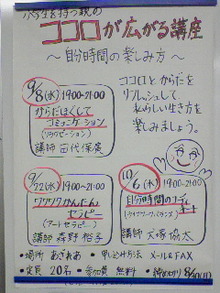 小学生を持つ親の
ココロが広がる講座
～自分時間の楽しみ方～
9/8(水) 19:00~21:00
からだほぐして
コミュニケーション
(リラクゼーション)
講師 田代保廣
ココロとからだを
リフレッシュして
私らしい生き方を
楽しみましょう。
9/22(水) 19:00~21:00
ワクワクかんたん
セラピー
(アートセラピー)
講師 森野裕子
10/6(水) 19:00~21:00
自分時間の
講師 大塚協太
・場所 あざれあ
・申し込み方法 メール&FAX
・定員 20名
・参加費 無料
・締めきり 8/30